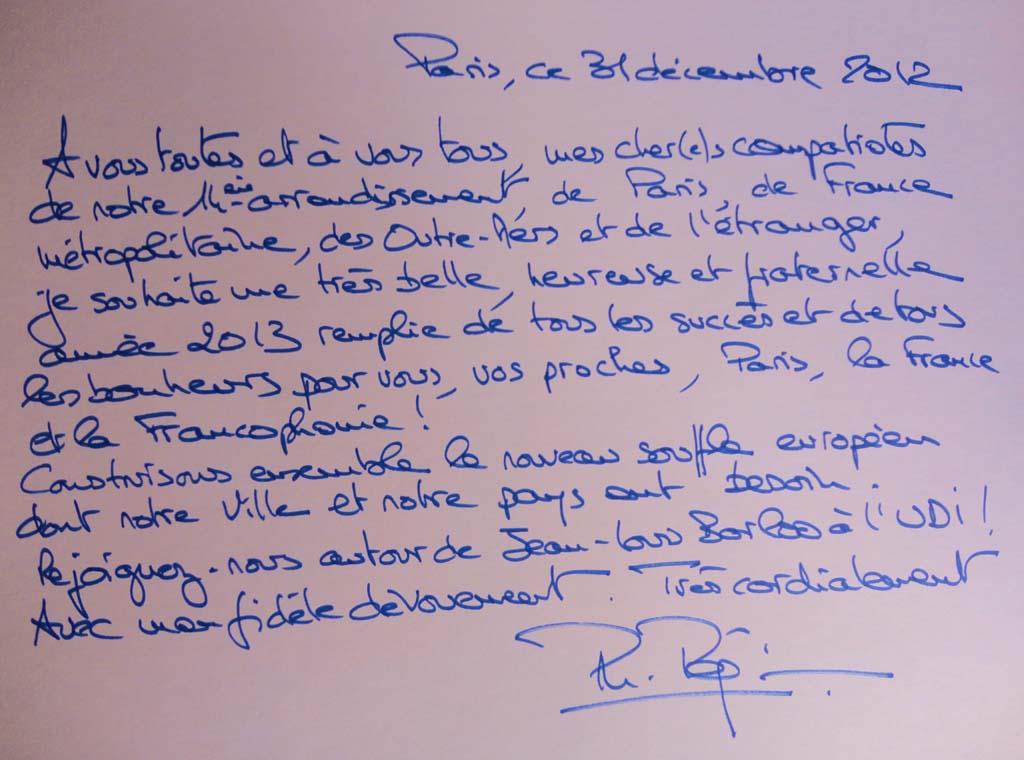 Paris, ce 31 décembre 2012
A vous toutes et à vous tous, mes cher(e)s compatriotes
de notre 14ème arrondissement, de Paris, de France
métropolitaine, des Outre-Mers et de l'étranger,
je souhaite une très belle, heureuse et fraternelle
année 2013 remplie de tous les succès et de tous
les bonheurs pour vous, vos proches, Paris, la France
et la Francophonie !
Construisons ensemble le nouveau souffle européen
dont notre ville et notre pays ont besoin.
Rejoignez-nous autour de Jean-Louis Borloo à l'UDI !
Avec mon fidèle dévouement. Très cordialement